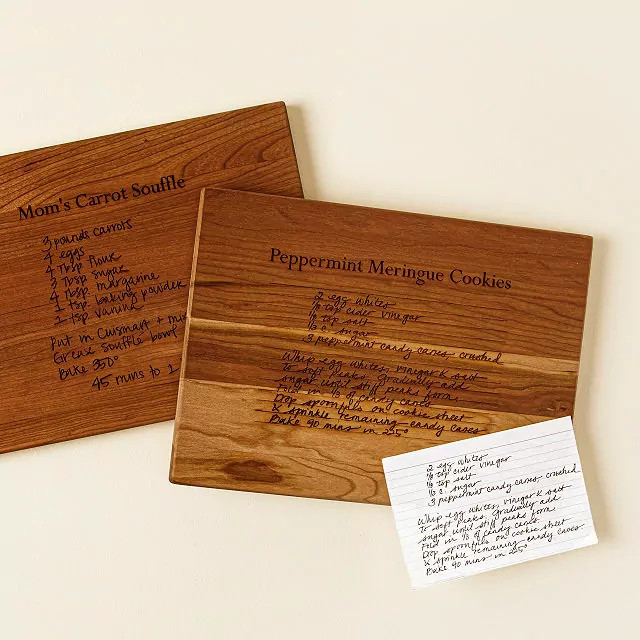 Mom's Carrot Souffle
3 pounds carrots
4 eggs
4 Tbsp flour
3 Tbsp sugar
4 Tbsp. margarine
1 tsp. baking powder
2 tsp vanilla
Put in Cuisinart + mix
Grease souffle bowl
Bake 350°
45 mins to 1
Peppermint Meringue Cookies
2 egg whites
⅛ tsp cider vinegar
⅛ tsp salt
½ c. sugar
3 peppermint candy canes, crushed
Whip egg whites, vinegar & salt
to soft peaks. Gradually add
sugar until stiff peaks form.
Fold in ⅓ of candy canes
Drop spoonfuls on cookie street
& sprinkle remaining candy canes
Bake 90 mins in 225°
2 egg whites
⅛ tsp cider vinegar
⅛ tsp salt
½ c. sugar
3 peppermint candy canes, crushed
Whip egg whites, vinegar & salt
to soft peaks. Gradually add
sugar until stiff peaks form.
Fold in ⅓ of candy canes
Drop spoonfuls on cookie street
& sprinkle remaining candy canes
Bake 90 mins in 225°